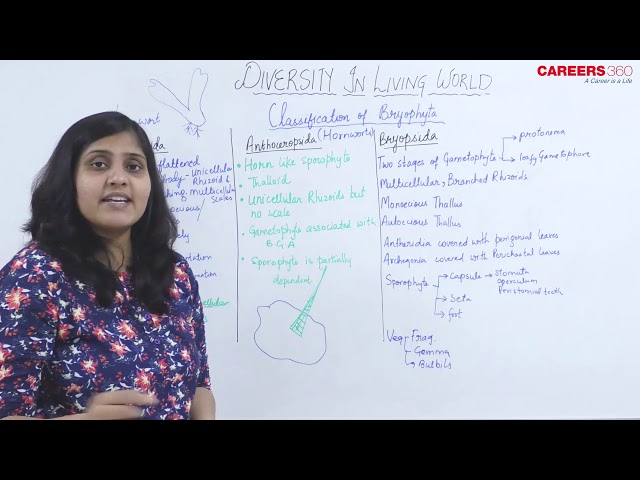 CAREERS360
A Career is a Life
DIVERSITY IN LIVING WORLD
Classification of Bryophyta
flattened
Body - Unicellular
Rhizoid &
multicellular
Scales
Anthoceropsida (Hornworts)
• Horn like Sporophyte
• Thalloid
• Unicellular Rhizoids but
no scale
• Gametophyte associated with
BGA
• Sporophyte is partially
dependent
Bryopsida
Two stages of Gametophyte → protonema
→ leafy Gametophore
Multicellular, Branched Rhizoids
Monoecious Thallus
Autoecious Thallus
Antheridia covered with perigonial leaves
Archegonia covered with Perichaetial leaves
Sporophyte → Capsule → stomata
operculum
Peristomial teeth
→ Seta
→ foot
Veg Frag.
Gemma
→ Bulbils